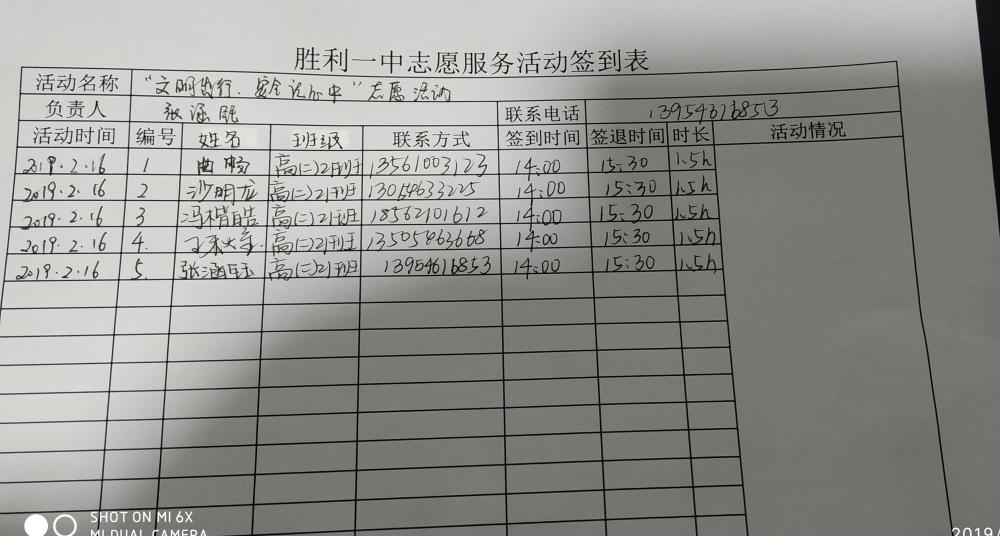 胜利一中志愿服务活动签到表
活动名称 "文明 行、安全 心中"志愿活动
负责人 张涵钰 联系电话 13954616853
活动时间 编号 姓名 班级 联系方式 签到时间 签退时间 时长 活动情况
2019.2.16 1 曲畅 高(二)21班 13561003123 14:00 15:30 1.5h
2019.2.16 2 沙明龙 高(二)21班 13054633225 14:00 15:30 1.5h
2019.2.16 3 冯楷皓 高(二)21班 18562101612 14:00 15:30 1.5h
2019.2.16 4. 高(二)21班 13505463668 14:00 15:30 1.5h
2019.2.16 5. 张涵钰 高(二)21班 13954616853 14:00 15:30 1.5h
SHOT ON MI 6X
MI DUAL CAMERA
2019/